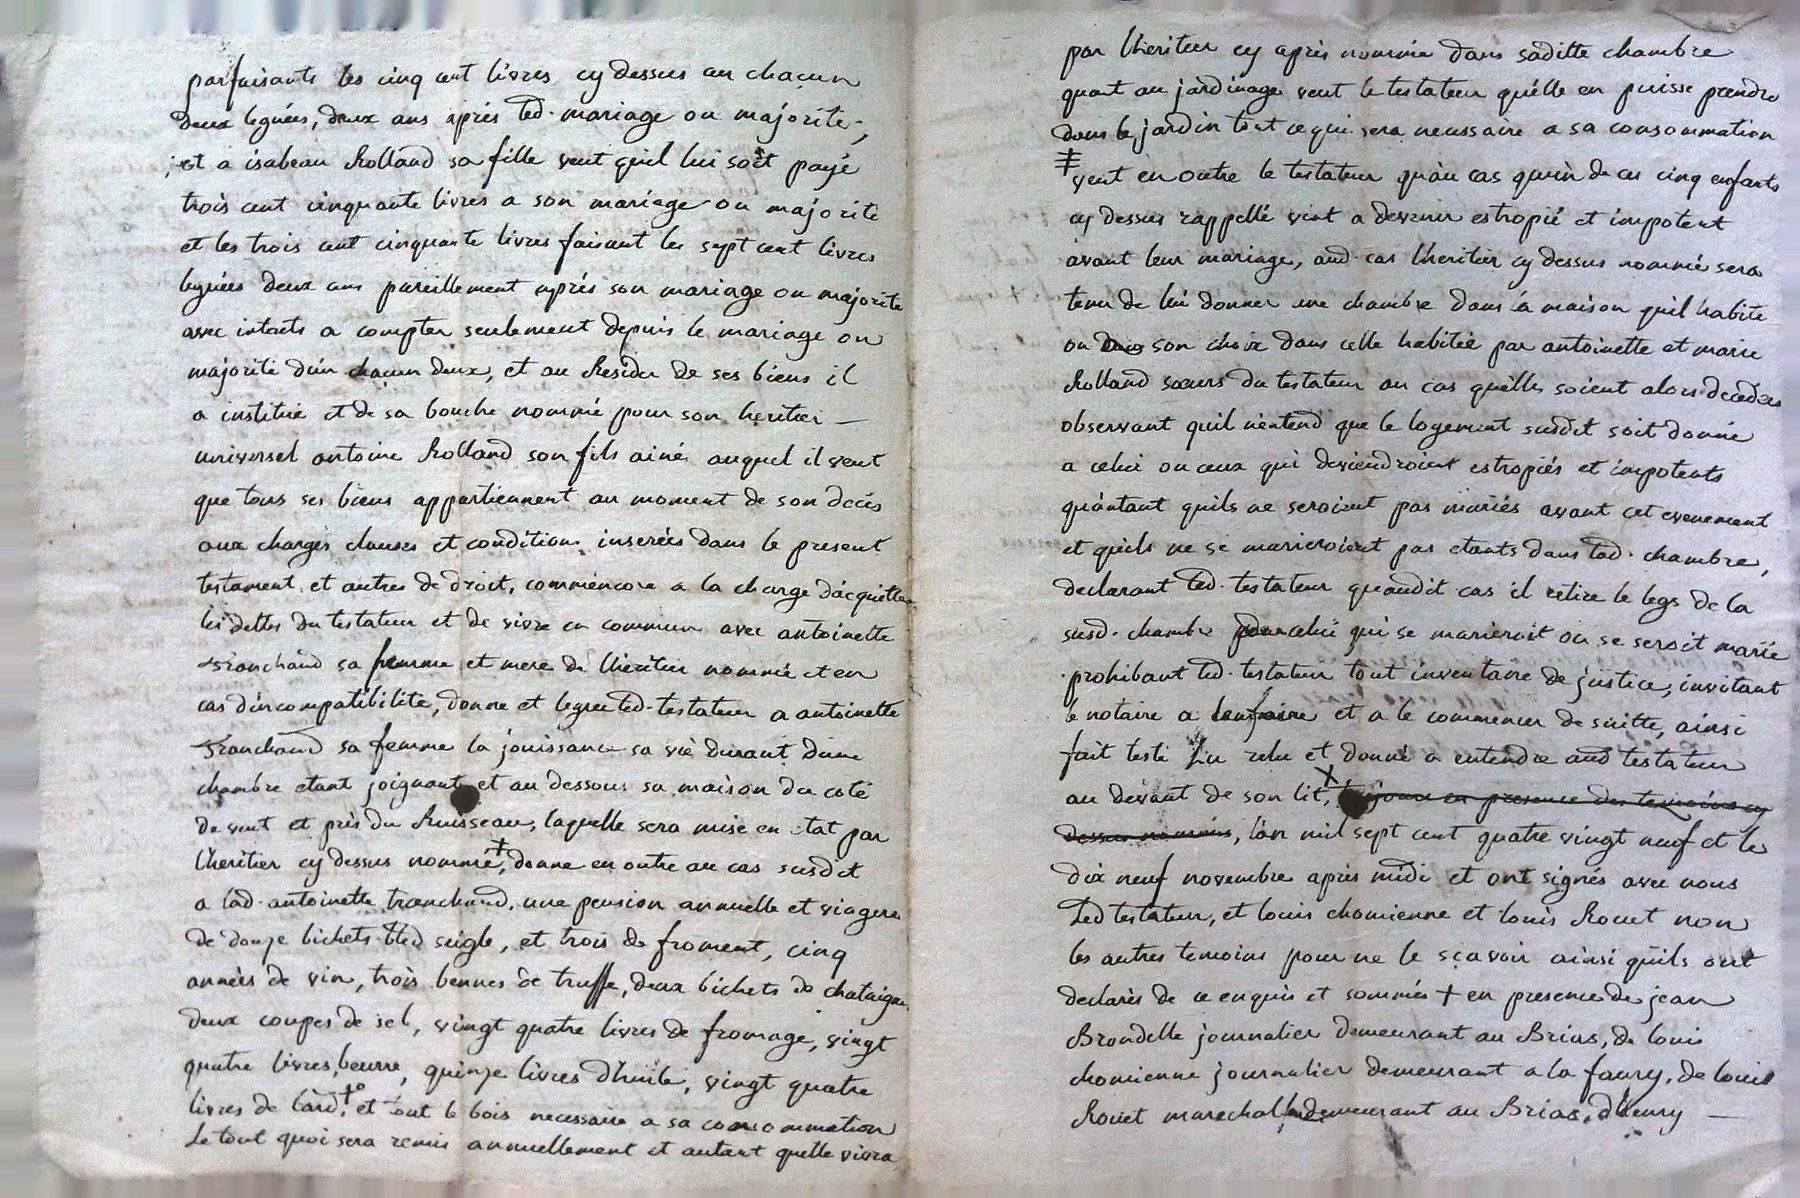 parfaisants les cinq cent livres cy dessus an chacun
deux leguées, deux ans après led. mariage ou majorite,
et a isabeau Rolland sa fille veut quil lui soit payé
trois cent cinquante livres a son mariage ou majorite
et les trois cent cinquante livres faisant les sept cent livres
leguées deux ans pareillement après son mariage ou majorite
avec interets a compter seulement depuis le mariage ou
majorité d'un chacun deux, et au Residu de ses biens il
a institué et de sa bouche nommé pour son heritier —
universel antoine Rolland son fils ainé auquel il veut
que tous ses biens appartiennent au moment de son decès
aux charges clauses et conditions inserées dans le present
testament et autres de droit, comme encore a la charge d'acquitter
les dettes du testateur et de vivre en commun avec antoinette
franchand sa femme et mere de l'heritier nommé et en
cas d'incompatibilite, donne et legue led. testateur a antoinette
franchand sa femme la jouissance sa vie durant d'une
chambre etant joignant et au dessous sa maison du coté
de vent et près du Ruisseau, laquelle sera mise en etat par
l'heritier cy dessus nommé, + donne en outre au cas susdit
a lad. antoinette tranchand, une pension annuelle et viagere
de douze bichets bled seigle, et trois de froment, cinq
années de vin, trois bennes de truffe, deux bichets de chataigne
deux coupes de sel, vingt quatre livres de fromage, vingt
quatre livres beurre, quinze livres d'huile, vingt quatre
livres de lard, et tout le bois necessaire a sa consommation
Le tout quoi sera remis annuellement et autant quelle vivra
par l'heritier cy après nommé dans saditte chambre
quant au jardinage veut le testateur qu'elle en puisse prendre
dans le jardin tout ce qui sera necessaire a sa consommation
veut en outre le testateur qu'au cas qu'un de ces cinq enfants
cy dessus rappellé vint a devenir estropié et impotent
avant leur mariage, aud. cas l'heritier cy dessus nommé sera
tenu de lui donner une chambre dans la maison quil habite
ou son choix dans celle habitée par antoinette et marie
Rolland sœurs du testateur au cas qu'elles soient alors decedées
observant quil n'entend que le logement susdit soit donné
a celui ou ceux qui deviendroient estropiés et impotents
qu'autant quils ne seroient pas mariés avant cet evenement
et qu'ils ne se marieroient pas etants dans lad. chambre,
declarant led. testateur quaudit cas il retire le legs de la
susd. chambre pour celui qui se marieroit ou se seroit marié
prohibant led. testateur tout inventaire de justice, invitant
le notaire a lenfaire et a le commencer de suitte, ainsi
fait testé Lu relu et donné a entendre aud testateur
au devant de son lit, + jour en presence des temoins cy
dessus nommés, l'an mil sept cent quatre vingt neuf et le
dix neuf novembre après midi et ont signés avec nous
Led testateur, et louis chomienne et louis Rouet non
les autres temoins pour ne le sçavoir ainsi qu'ils ont
declarés de ce enquis et sommés + en presence de jean
Brondelle journalier demeurant au Brias, de louis
chomienne journalier demeurant a la faury, de louis
Rouet marechal demeurant au Brias, d'henry —